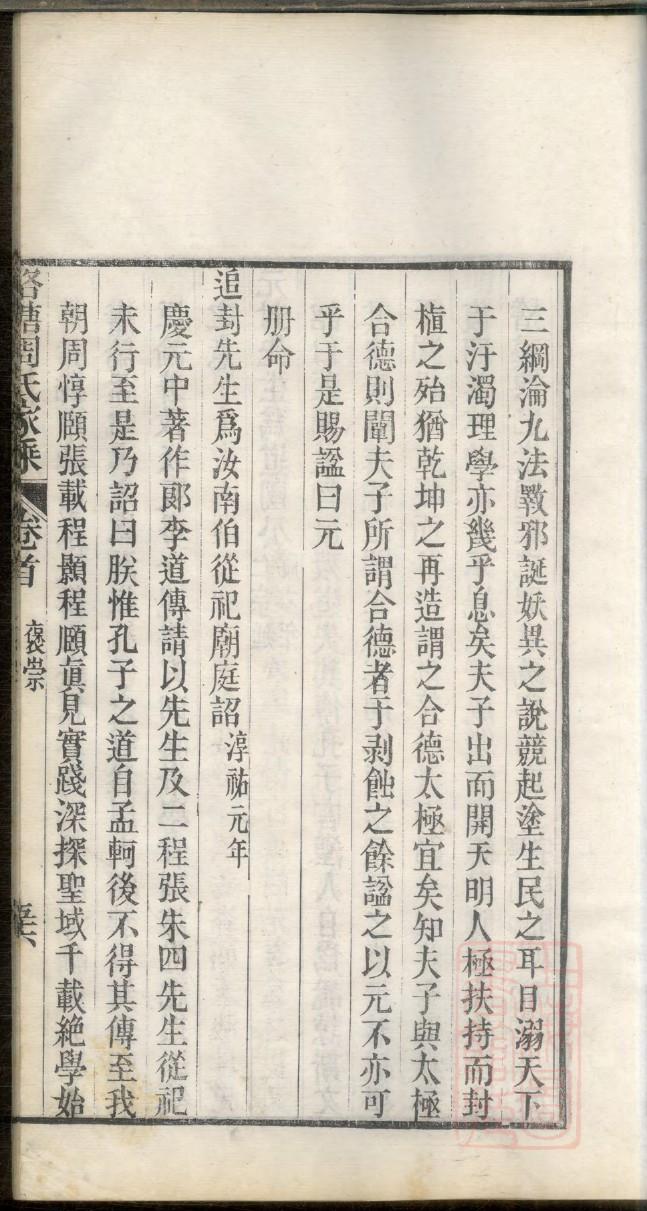 三綱淪九法斁邪誕妖異之說競起塗生民之耳目溺天下
于汙濁理學亦幾乎息矣夫子出而開天明人極扶持而封
植之殆猶乾坤之再造謂之合德太極宜矣知夫子與太極
合德則闡夫子所謂合德者于剥蝕之餘諡之以元不亦可
乎于是賜諡曰元
册命
追封先生爲汝南伯從祀廟庭詔 淳祐元年
慶元中著作郞李道傳請以先生及二程張朱四先生從祀
未行至是乃詔曰朕惟孔子之道自孟軻後不得其傳至我
朝周惇頤張載程顥程頤眞見實踐深探聖域千載絶學始
周氏家乘 卷首 褒崇